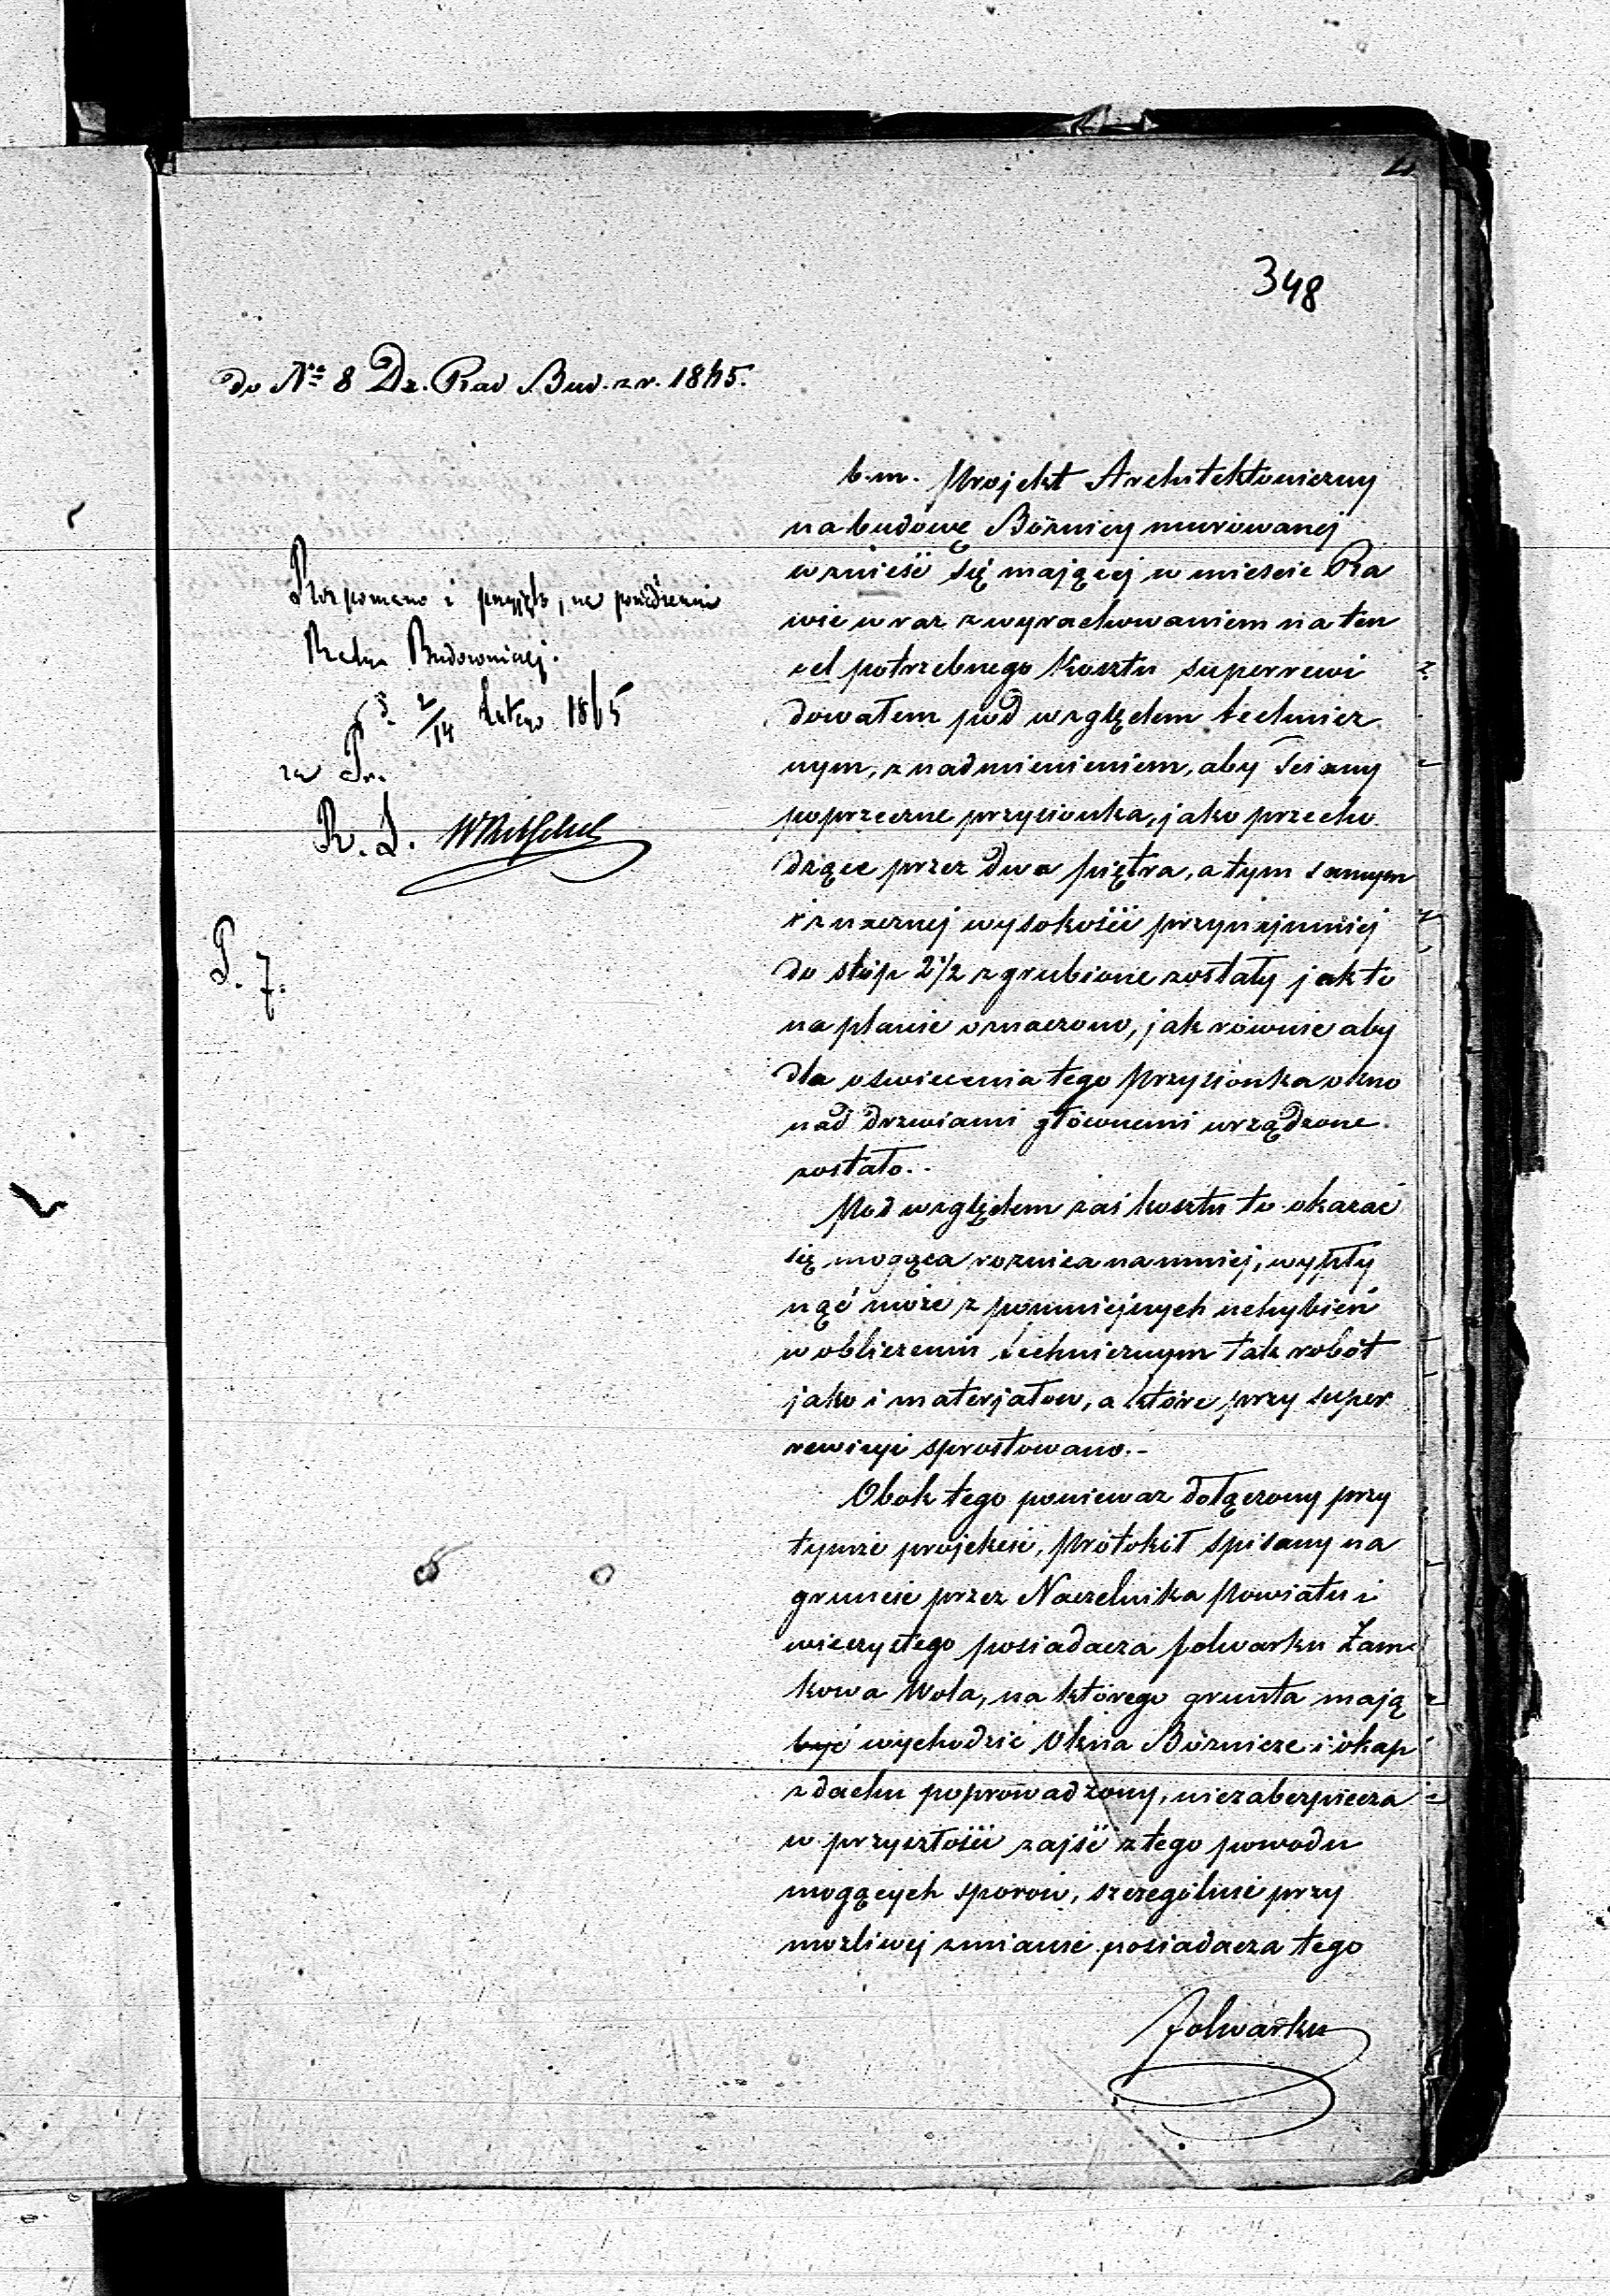 348
do No 8 Dz. Rad Bud. z r. 1865.
Rozpoznano i przyjęto, na posiedzeniu
Rady Budowniczej.
d. 2/14 Lutego 1865
za Pr.
R. S.
P. 7.
b. m. Projekt Architektoniczny
na budowę Bóżnicy murowanej
wznieść się mającej w mieście Ra
wie wraz z wyrachowaniem na ten
cel potrzebnego kosztu superrewi
dowałem pod względem technicz
nym, z nadmienieniem, aby ściany
poprzeczne przycionka, jako przecho
dzące przez dwa piętra, a tym samym
i znacznej wysokości przynajmniej
do stóp 2 1/2 zgrubione zostały jak to
na planie oznaczono, jak równie aby
dla oswiecenia tego Przycionka okno
nad drzwiami głównemi urządzone
zostało.
Pod względem zaś kosztu to okazać
się mogąca roznica na mniej, wypły
nąć może z pomniejszych uchybień
w obliczeniu technicznym tak robót
jako i materjałow, a które przy super
rewizyi sprostowano.-
Obok tego poniewaz dołączony przy
tymże projekcie, Protokół spisany na
gruncie przez Naczelnika Powiatu i
wieczystego posiadacza folwarku Zam
kowa Wola, na którego grunta mają
być wychodzić Okna Bóżnicze i okap
z dachu poprowadzony, niezabezpiecza
w przyszłości zajść z tego powodu
mogących sporów, szczególnie przy
mozliwej zmianie posiadacza tego
folwarku